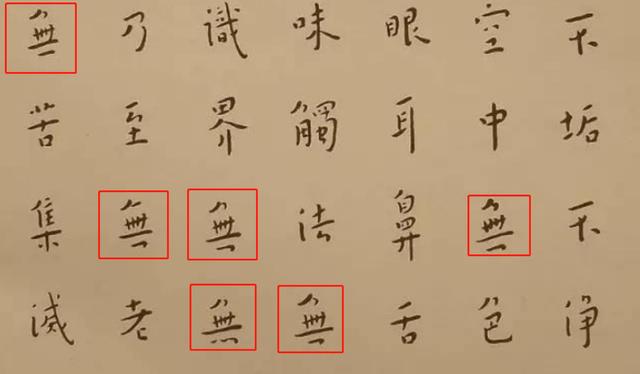 不垢不淨
空中無色
眼耳鼻舌
味觸法無
識界無無
乃至無老
無苦集滅